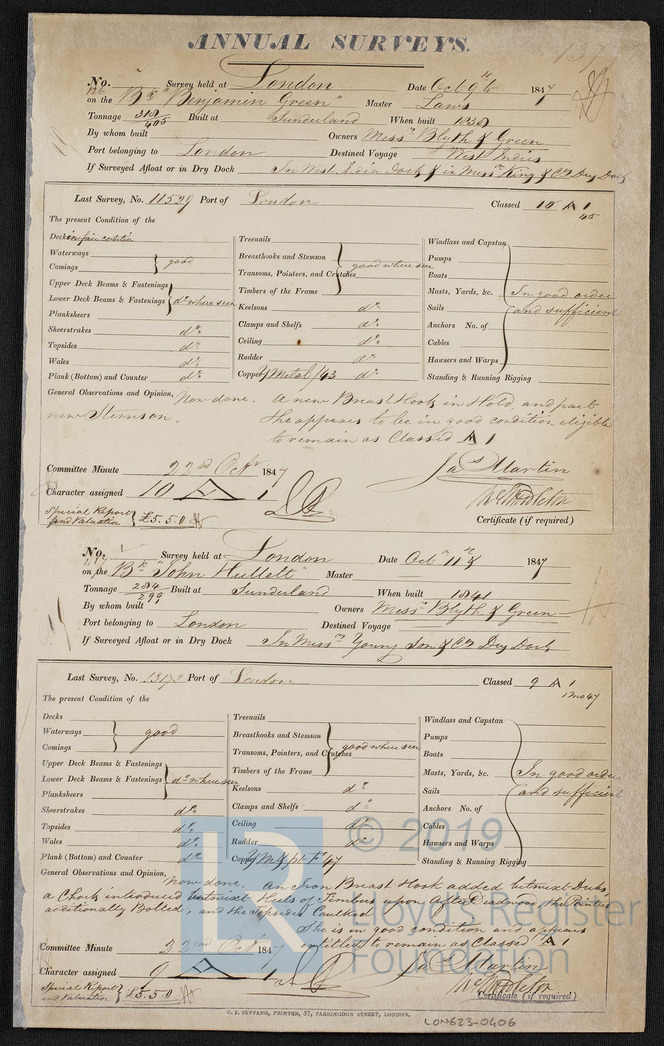 ANNUAL SURVEYS.
137
No. 126 Survey held at London Date Octr 9th 1847
on the Bk "Benjamin Green" Master Laws
Tonnage 318/405 Built at Sunderland When built 1838
By whom built Owners Messrs Blyth & Green
Port belonging to London Destined Voyage West Indies
If Surveyed Afloat or in Dry Dock In West India Dock & in Messrs King & Co Dry Dock
Last Survey, No. 11529 Port of London Classed 10 A 1
45
The present Condition of the
Decks in fair condition
Waterways
Comings
good
Upper Deck Beams & Fastenings
Lower Deck Beams & Fastenings
Planksheers
do where seen
Sheerstrakes do.
Topsides do.
Wales do.
Plank (Bottom) and Counter do.
Treenails
Breasthooks and Stemson
Transoms, Pointers, and Crutches
Timbers of the Frame
good where seen
Keelsons do.
Clamps and Shelfs do.
Ceiling do.
Rudder do.
Copper Y Metal /43 do.
Windlass and Capstan
Pumps
Boats
Masts, Yards, &c.
Sails
Anchors No. of
Cables
Hawsers and Warps
Standing & Running Rigging
In good order
and sufficient
General Observations and Opinion, Now done. A new Breast Hook in Hold, and part
new Stemson. She appears to be in good condition eligible
to remain as Classed A 1
Jas Martin
Committee Minute 22nd Octr 1847
Character assigned 10 A 1
Special Report
and Valuation £5.5.0
Certificate (if required)
No. Survey held at London Date Octr 11th 1847
on the Bk "John Hullett" Master
Tonnage 284/299 Built at Sunderland When built 1841
By whom built Owners Messrs Blyth & Green
Port belonging to London Destined Voyage
If Surveyed Afloat or in Dry Dock In Messrs Young Son & Co Dry Dock
Last Survey, No. Port of London Classed 9 A 1
1 mo 47
The present Condition of the
Decks
Waterways
Comings
good
Upper Deck Beams & Fastenings
Lower Deck Beams & Fastenings
Planksheers
do where seen
Sheerstrakes do.
Topsides do.
Wales do.
Plank (Bottom) and Counter do.
Treenails
Breasthooks and Stemson
Transoms, Pointers, and Crutches
Timbers of the Frame
good where seen
Keelsons do
Clamps and Shelfs do
Ceiling do.
Rudder do.
Copper Y M & pt F 47
Windlass and Capstan
Pumps
Boats
Masts, Yards, &c.
Sails
Anchors No. of
Cables
Hawsers and Warps
Standing & Running Rigging
In good order
and sufficient
General Observations and Opinion,
Now done. An Iron Breast Hook added betwixt Decks,
a Chock introduced betwixt Heels of Timbers upon After Deadwood the Pointers
additionally Bolted, and the topsides Caulked
She is in good condition and appears
entitled to remain as Classed A 1
Jas Martin
Committee Minute 22nd Octr 1847
Character assigned 9 A 1
Special Report
and Valuation £5.5.0
Certificate (if required)
C. F. SEYFANG, PRINTER, 57, FARRINGDON STREET, LONDON.
LON623-0406
LR
© 2019
Lloyd's Register
Foundation